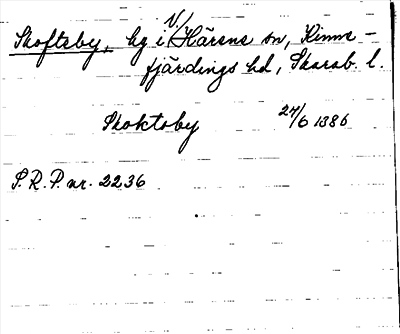 Skoftsby, hg i V. Härene sn, Kinne-
fjärdings hd, Skarab. l.
Skoktoby 24/6 1386
S.R.P. nr. 2236